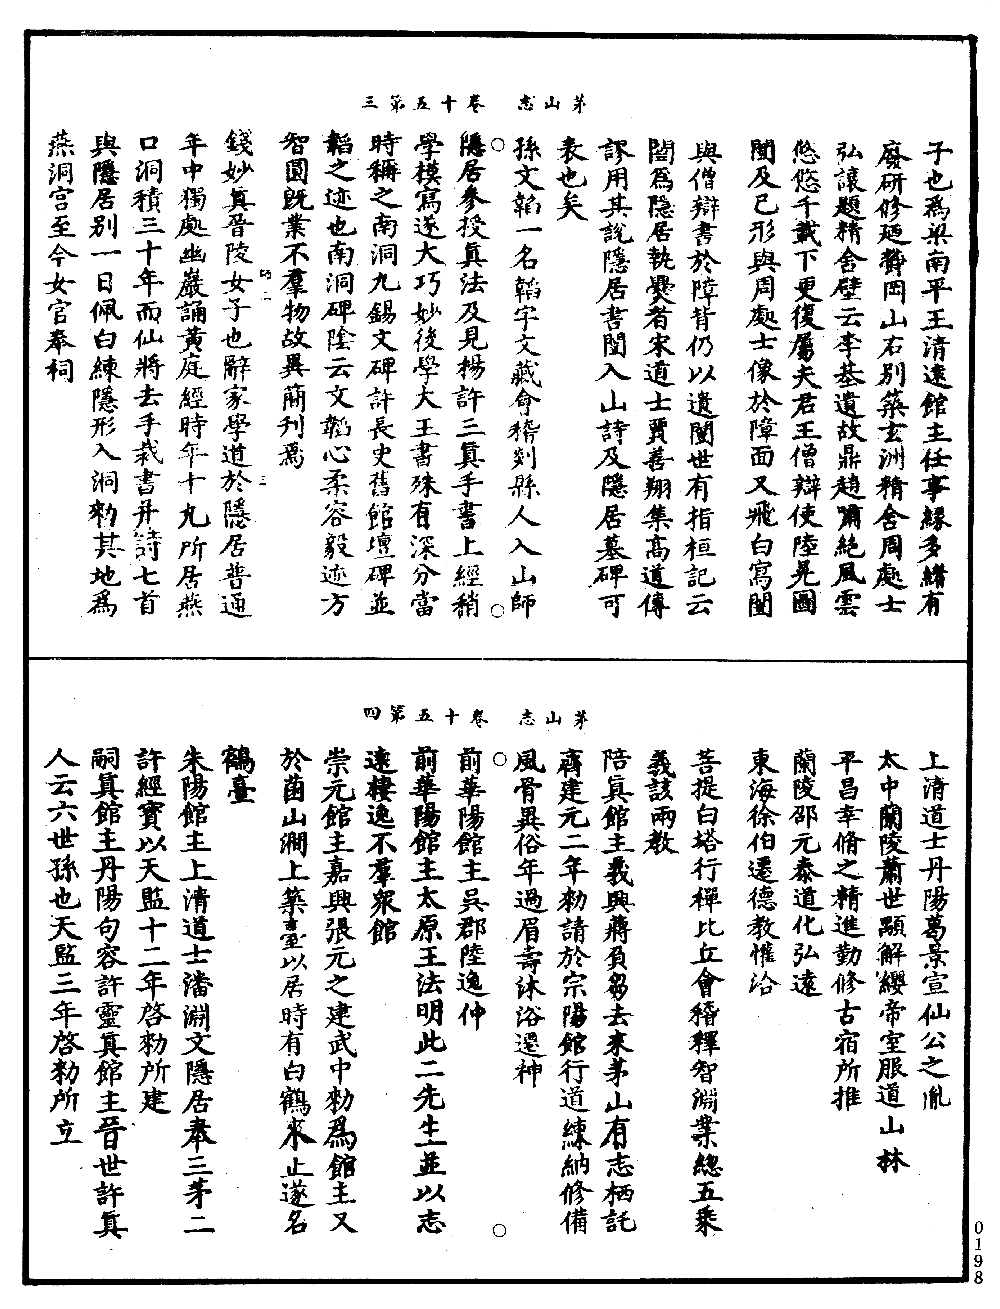 茅山志　卷十五第三
子也為梁南平王清遠館主任事緣多緒有
廢研修廼於岡山右別築玄洲精舍周處士
弘讓題精舍壁云李基遺故鼎趙嘯絕風雲
悠悠千載下更復屬夫君王僧辯使陸晃圖
閶及己形與周處士像於障面又飛白寫閶
與僧辯書於障背仍以遺閶世有指桓記云
閶為隱居執爨者宋道士賈善翔集高道傳
謬用其說隱居書閶入山詩及隱居墓碑可
表也矣
孫文韜一名韜字文藏會稽剡縣人入山師
隱居參授真法及見楊許三真手書上經稍
學模寫遂大巧妙後學大王書殊有深分當
時稱之南洞九錫文碑許長史舊館壇碑並
韜之迹也南洞碑陰云文韜心柔容毅迹方
智圓既業不羣物故異簡刊焉
錢妙真晉陵女子也辭家學道於隱居普通
年中獨處幽巖誦黃庭經時年十九所居燕
口洞積三十年而仙將去手裁書并詩七首
與隱居別一日佩白練隱形入洞勑其地為
燕洞宮至今女官奉祠
茅山志　卷十五第四
上清道士丹陽葛景宣仙公之胤
太中蘭陵蕭世顯解纓帝室服道山林
平昌幸脩之精進勤修古宿所推
蘭陵邵元泰道化弘遠
東海徐伯遷德教惟洽
菩提白塔行禪比丘會稽釋智淵業總五乘
義該兩教
陪真館主義興蔣負芻去來茅山有志栖託
齊建元二年勑請於宗陽館行道練納修備
風骨異俗年過眉壽沐浴遷神
前華陽館主吳郡陸逸仲
前華陽館主太原王法明此二先生並以志
遠棲逸不羣衆館
崇元館主嘉興張元之建武中勑為館主又
於菌山澗上築臺以居時有白鶴來止遂名
鶴臺
朱陽館主上清道士潘淵文隱居奉三茅二
許經寶以天監十二年啓勑所建
嗣真館主丹陽句容許靈真館主晉世許真
人云六世孫也天監三年啓勑所立
0198